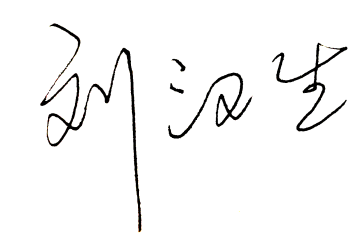 刘汉生